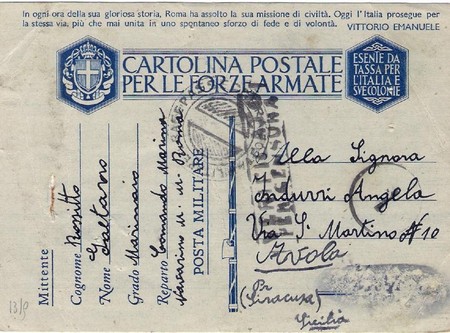 In ogni ora della sua gloriosa storia, Roma ha assolto la sua missione di civiltà. Oggi l'Italia prosegue per
la stessa via, più che mai unita in uno spontaneo sforzo di fede e di volontà. VITTORIO EMANUELE
CARTOLINA POSTALE
PER LE FORZE ARMATE
ESENTE DA
TASSA PER
L'ITALIA E
SVE COLONIE
Mittente
Cognome Rossitto
Nome Gaetano
Grado Marinaio
Reparto Comando Marina
Navarino M. M. Roma
POSTA MILITARE
Alla Signora
Indurri Angela
Via S. Martino N 10
Avola
Pr
(Siracusa)
Sicilia
13/9